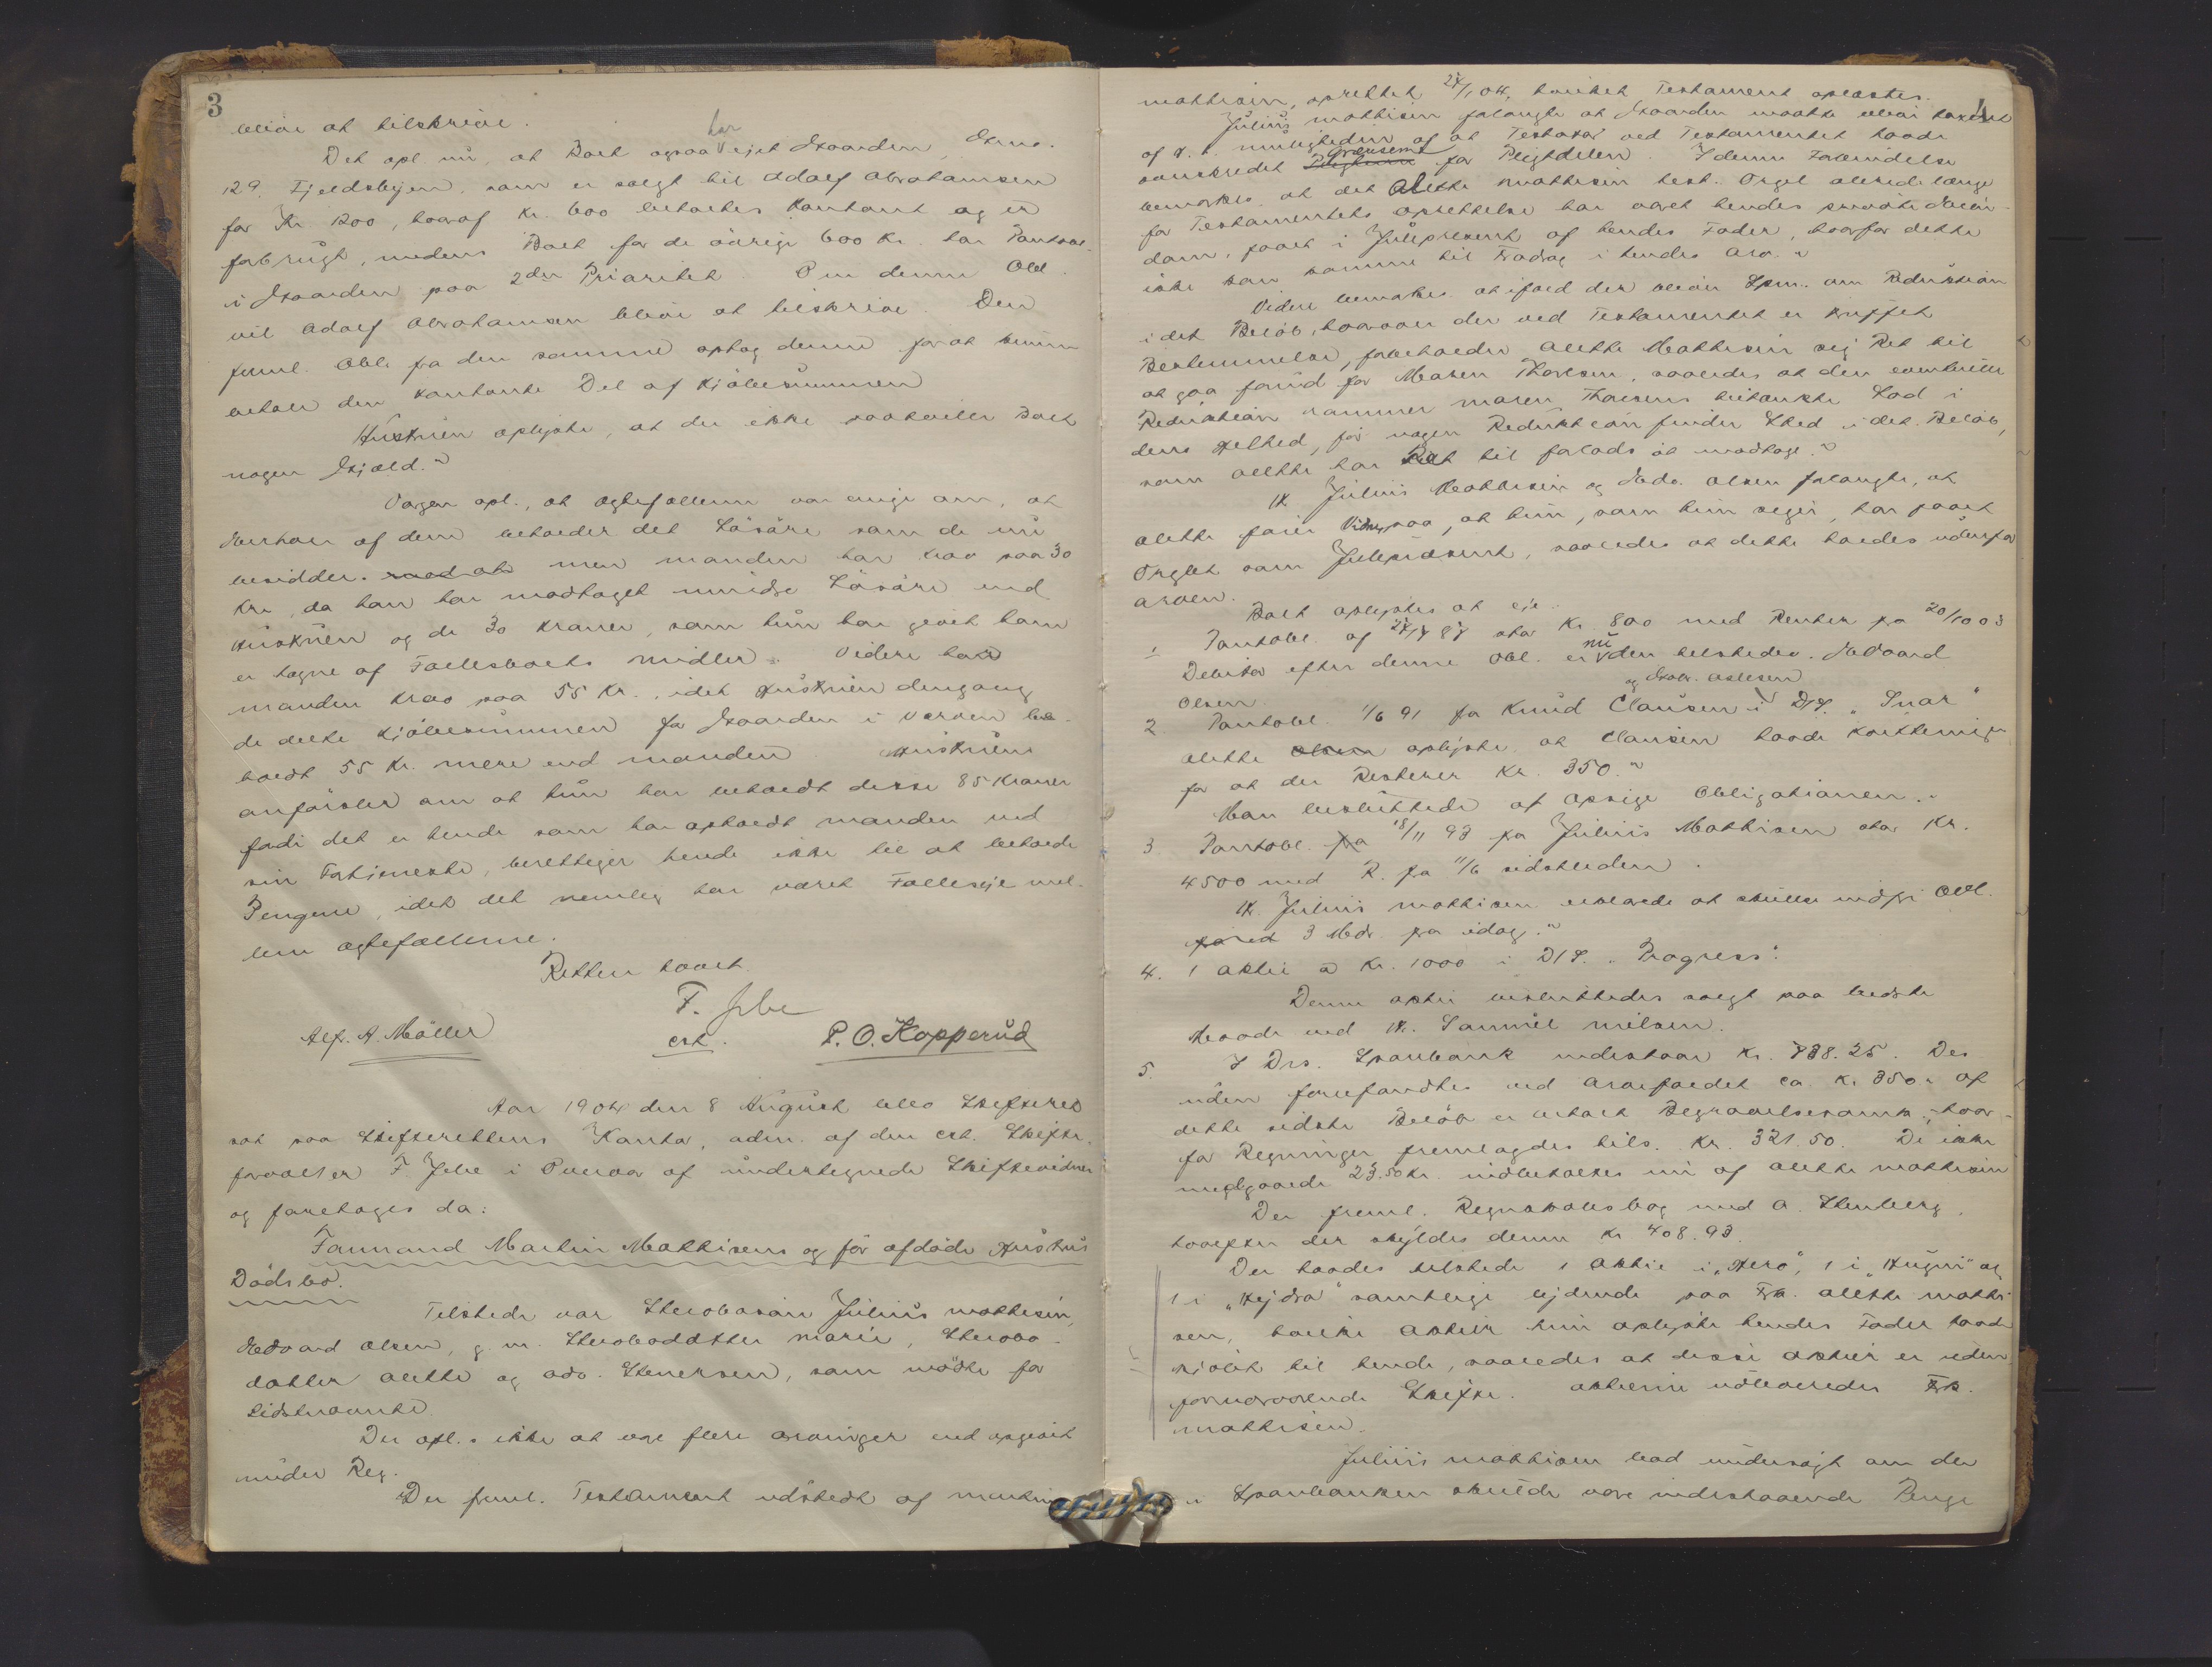 3
blive at tilskrive.
Det opl. nu, at Boet ogsaa har ejet Gaarden, Grno.
129. Fjeldskyen, som er solgt til Adolf Abrahamsen
for Kr. 1200, hvoraf Kr. 600 betaltes kontant og er
forbrugt, medens Boet for de øvrige 600 Kr. har Pantobl.
i Gaarden paa 2den Prioritet. Om denne Obl.
vil Adolf Abrahamsen blive at tilskrive. Den
freml. Obl. fra den samme optog denne for at kunne
betale den kontante Del af Kjøbesummen
Hustruen oplyste, at der ikke paahviler Boet
nogen Gjæld."
Vogen opl., at Ægtefællerne var enige om, at
Enhver af dem beholder det Løsøre som de nu
besidder. men manden har krav paa 30
Kr., da han har modtaget mindre Løsøre end
Hustruen og de 30 Kroner, som hun har givet ham
er tagne af Fællesboets midler. Videre har
manden krav paa 55 Kr., idet Hustruen dengang
de delte Kjøbesummen for Gaarden i Verven be-
holdt 55 Kr. mere end manden. Hustruens
anførsler om at hun har beholdt disse 85 Kroner
fordi det er hende som har opholdt manden ved
sin Fortjeneste, berettiger hende ikke til at beholde
Pengene, idet det nemlig har været Fælleseje mel-
lem Ægtefællerne.
Retten hævet.
F. Jebe
cst.
Alf. A. Møller
P. O. Kopperud
Aar 1904 den 8 August blev Skifteret
sat paa Skifterettens Kontor, adm. af den cst. Skifte-
forvalter F. Jebe i Overvær af undertegnede Skiftevidner
og foretoges da:
Formand Martin Mathisens og før afdøde Hustrus
Dødsbo.
Tilstede var Stervbosøn Julius Mathisen,
Edvard Olsen, g. m. Stervbodatter Marie, Stervbo-
datter Alette og adv. Stenersen, som mødte for
Sidstnævnte.
Der opl. ikke at være flere Arvinger end opgivet
under Reg.
Der freml. Testament udstedt af Martin
4
Mathisen, oprettet 27/1 04, hvilket Testament oplæstes.
Julius Mathisen forlangte at Gaarden maatte blive taxeret
af H. t. muligheden af at Testator ved Testamentet havde
overskredet Grænserne for Pligtdelen. I denne Forbindelse
bemærkes at det Alette Mathisen test. Orgel allerede længe
før Testamentets oprettelse har været hendes private Eien-
dom, faaet i Julepresent af hendes Fader, hvorfor dette
ikke kan komme til Fradrag i hendes Arv."
Videre bemærkes at ifald der bliver Spm. om Reduktion
i det Beløb, hvorover der ved Testamentet er truffet
Bestemmelse, forbeholder Alette Mathisen sig Ret til
at gaa forud for Maren Thorsen, saaledes at den eventuelle
Reduktion rammer Maren Thorsens tiltænkte Lod i
dens Helhed, før nogen Reduktion finder Sted i det Beløb,
som Alette har Ret til forlods at modtage."
H. Julius Mathisen og Edv. Olsen forlangte, at
Alette fører Vidner paa, at hun, som hun siger, har faaet
Orglet som Julepræsent, saaledes at dette holdes udenfor
arven.
Boet oplystes at eje:
1 Pantobl. af 27/7 87 stor Kr. 800 med Renter fra 20/10 03
Debitor efter denne Obl. er nu den tilstedev. Edvard
Olsen.
2 Pantobl. 1/6 91 fra Knud Clausen og Gabr. Aslesen i D/S. "Snar"
Alette oplyste at Clausen havde kvittering
for at der Resterer Kr. 350."
Man besluttede at opsige Obligationen."
3. Pantobl. 18/11 93 fra Julius Mathisen stor Kr.
4500 med R. fra 11/6 sidstleden.
H. Julius Mathisen erklærede at skulle indfri Obl.
3 Mdr. fra idag."
4. 1 Aktie a Kr. 1000 i D/S. "Progress".
Denne aktie besluttedes solgt paa bedste
Maade ved H. Samuel Nilsen.
5. I Drs. Sparebank indestaar Kr. 738.25. Des
uden forefandtes ved Arvefaldet ca. Kr. 350. af
dette sidste Beløb er betalt Begravelsesomk., hvor-
for Regninger fremlagdes tils. Kr. 321.50. De ikke
medgaaede 23.50 Kr. indbetaltes nu af Alette Mathisen
Der freml. Regnskabsbog med A. Stenberg,
hvorefter der skyldes denne Kr. 408.93.
Der havdes tilstede 1 Aktie i "Hero", 1 i "Hugin" og
1 i "Hejdra" samtlige lydende paa Frk. Alette Mathi-
sen, hvilke Aktier hun oplyste hendes Fader havde
kjøbt til hende, saaledes at disse aktier er uden
fornærværende Skifte. Aktierne udleveredes Frk.
Mathisen.
Julius Mathisen bad undersøgt om der
i Sparebanken skulde være indestaaende Penge